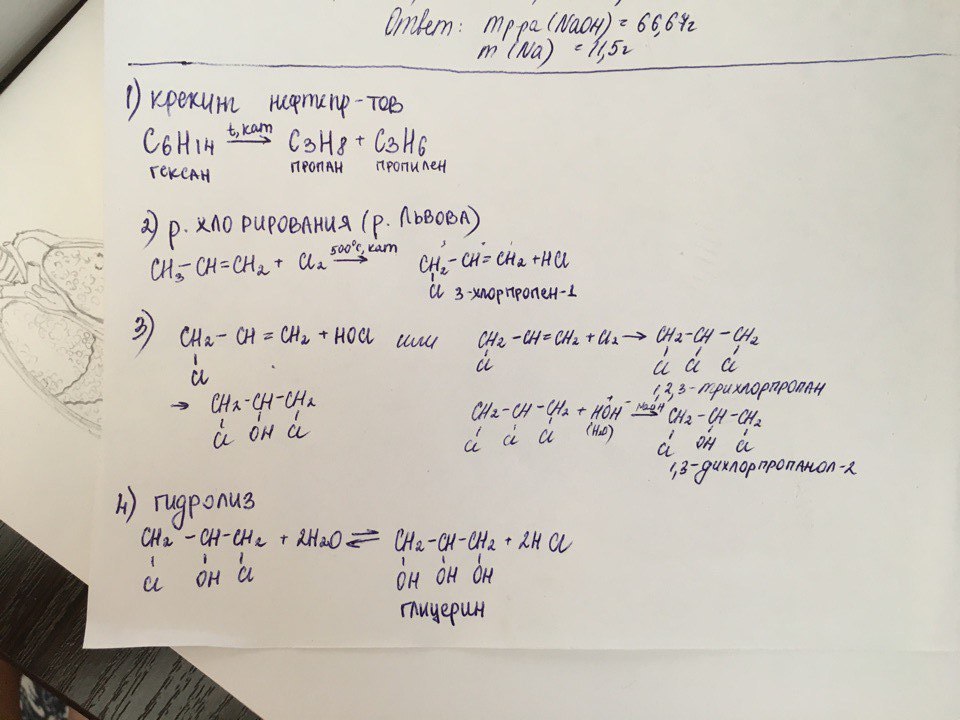 Ответ: mр-ра (NaOH) = 66,67г
m (Na) = 11,5г
1) крекинг нефтепр-тов
C6H14 t, кат → C3H8 + C3H6
гексан пропан пропилен
2) р. хлорирования (р. Львова)
CH3-CH=CH2 + Cl2 500°C, кат → CH2-CH=CH2 + HCl
Cl 3-хлорпропен-1
3) CH2-CH=CH2 + HOCl или CH2-CH=CH2 + Cl2 → CH2-CH-CH2
Cl Cl Cl Cl Cl
1,2,3-трихлорпропан
→ CH2-CH-CH2 CH2-CH-CH2 + HOH NaOH → CH2-CH-CH2
Cl OH Cl Cl Cl Cl (H2O) Cl OH Cl
1,3-дихлорпропанол-2
4) гидролиз
CH2-CH-CH2 + 2H2O ⇌ CH2-CH-CH2 + 2HCl
Cl OH Cl OH OH OH
глицерин